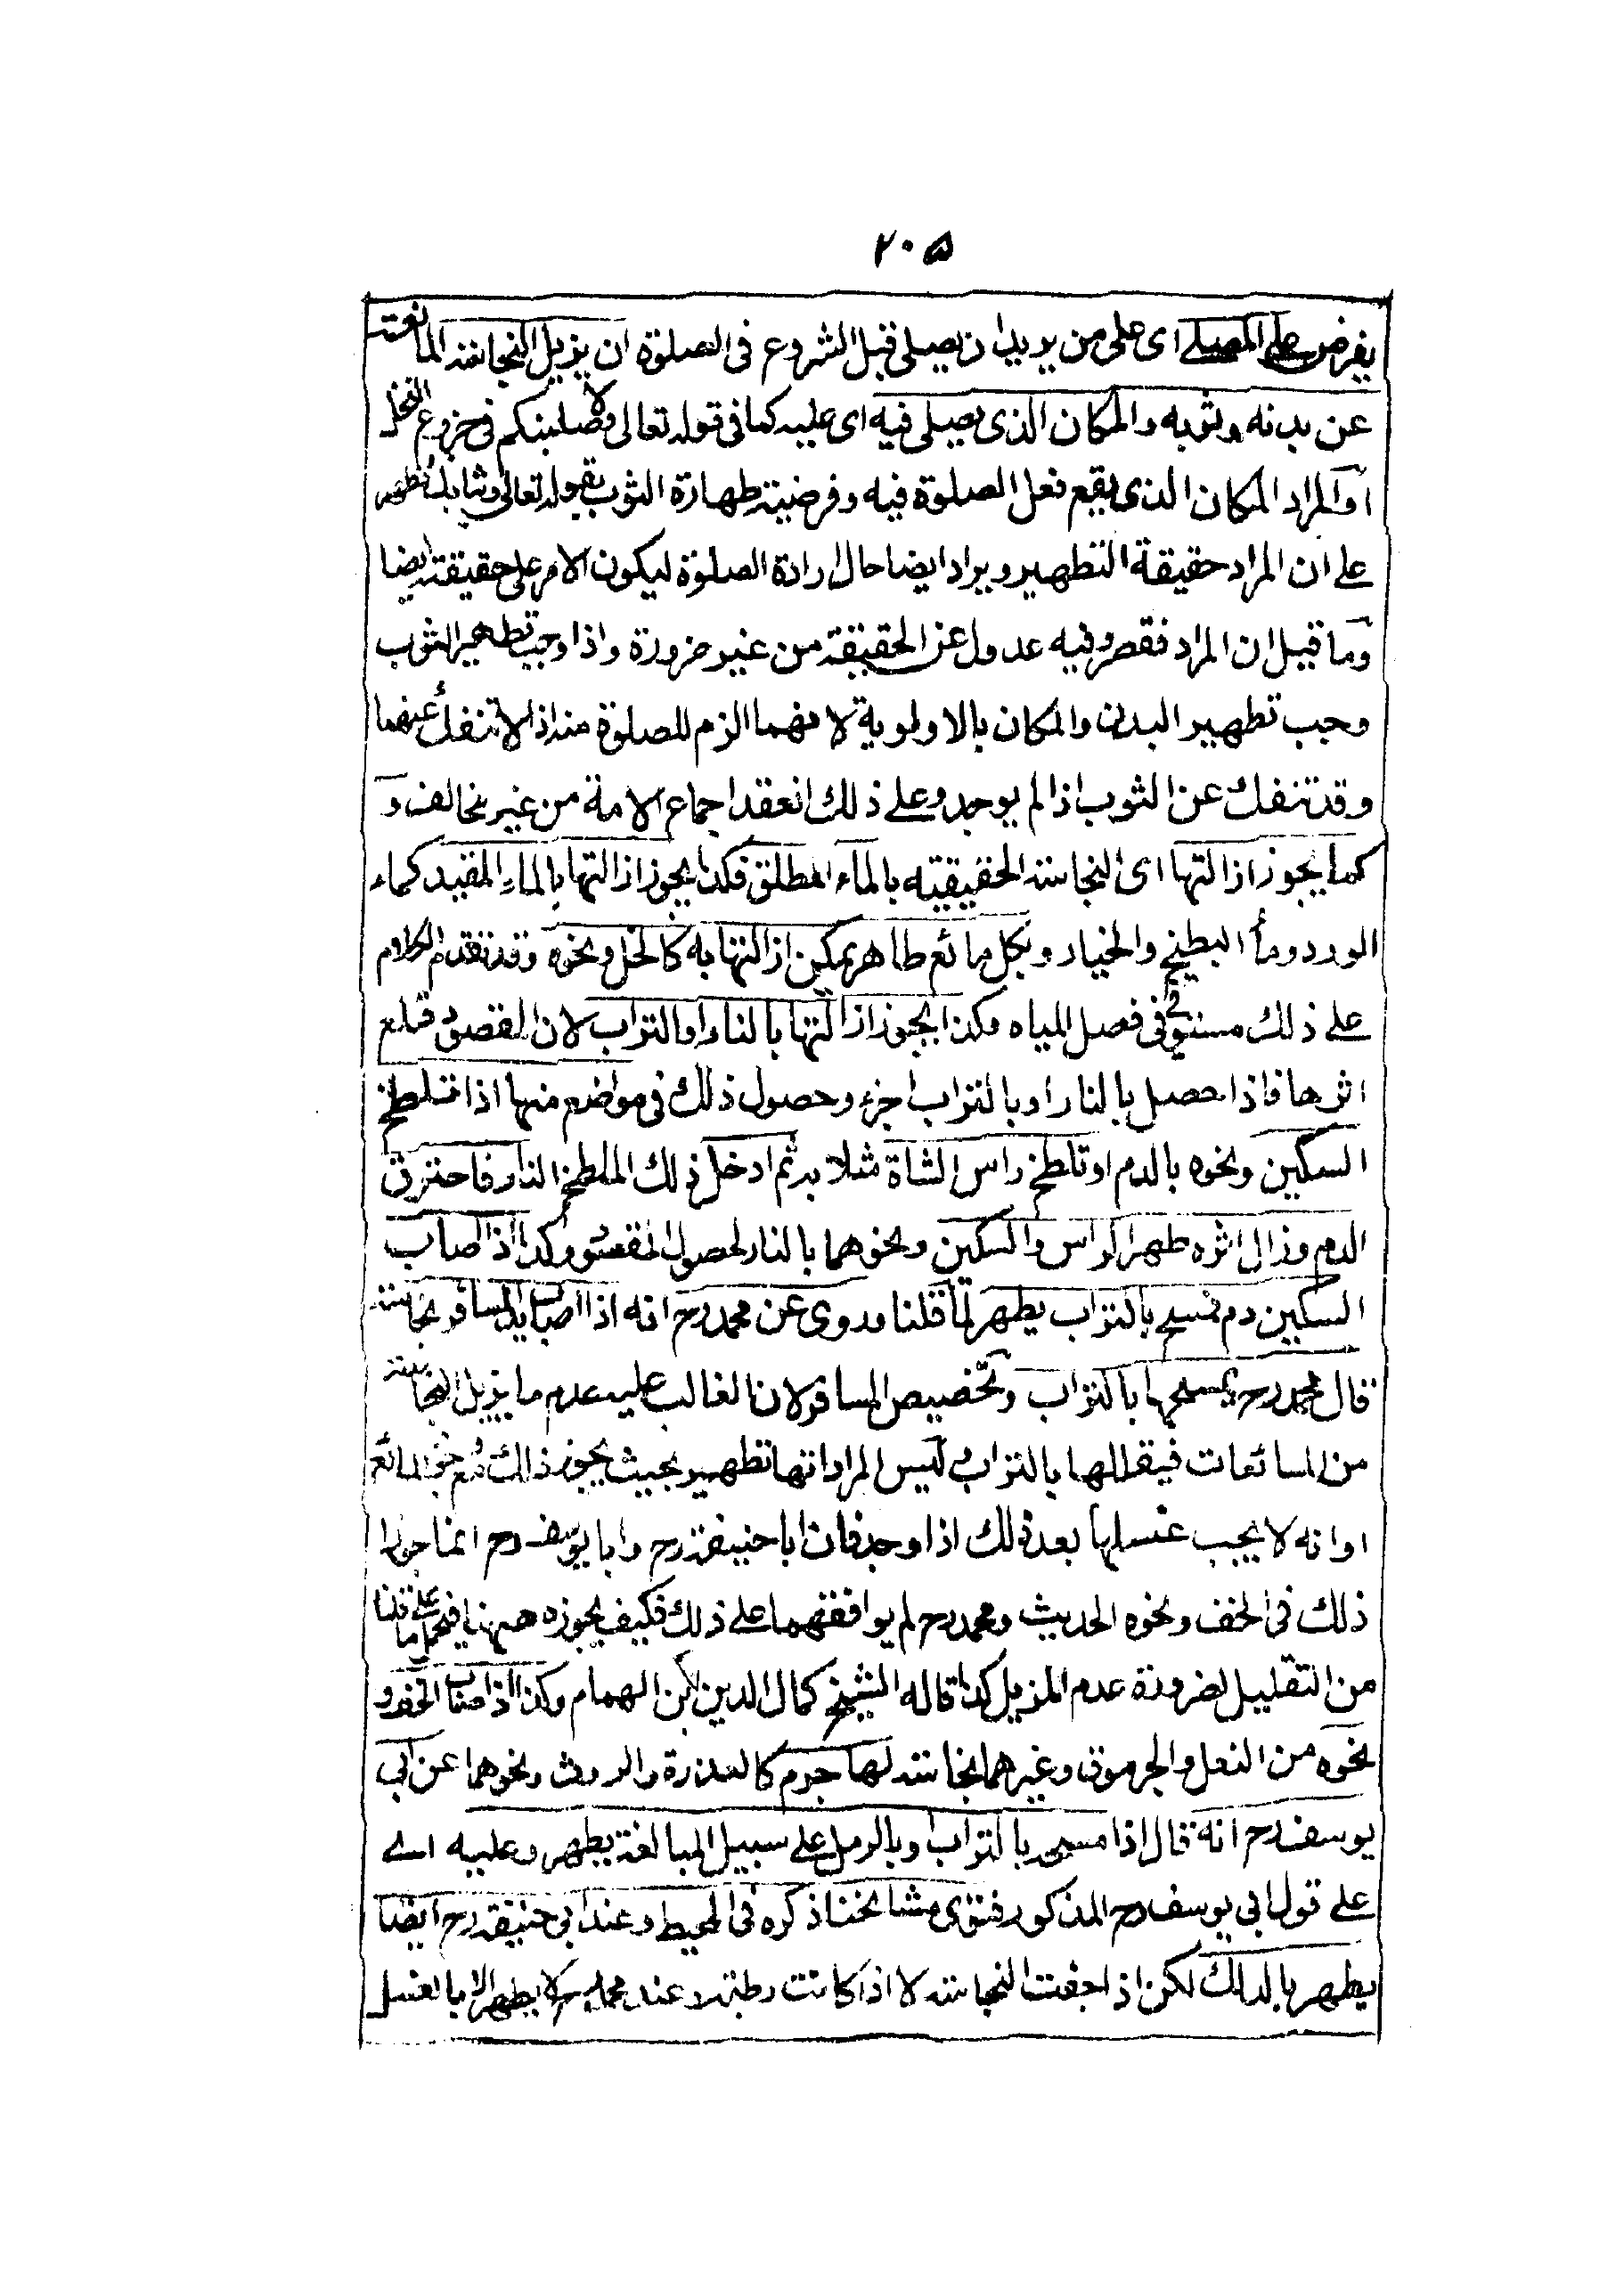 ٢٠٥
يفرض على المصلى اى على من يريد ان يصلى قبل الشروع فى الصلوة ان يزيل النجاسة المانعة
عن بدنه وثوبه والمكان الذى يصلى فيه اى عليه كما فى قوله تعالى ولاصلبنكم فى جذوع النخل
او المراد المكان الذى يقع فعل الصلوة فيه وفرضية طهارة الثوب بقوله تعالى وثيابك فطهر
على ان المراد حقيقة التطهير ويراد ايضا حال ارادة الصلوة ليكون الامر على حقيقته ايضا
وما قيل ان المراد فقصر وفيه عدول عن الحقيقة من غير ضرورة واذا وجب تطهير الثوب
وجب تطهير البدن والمكان بالاولوية لانهما الزم للصلوة منه اذ لا تنفك عنهما
وقد تنفك عن الثوب اذا لم يوجد وعلى ذلك انعقد اجماع الامة من غير مخالف و
كما يجوز ازالتها اى النجاسة الحقيقية بالماء المطلق فكذا يجوز ازالتها بالماء المقيد كماء
الورد ومأ البطيخ والخيار وبكل مائع طاهر يمكن ازالتها به كالخل ونحوه وقد تقدم الكلام
على ذلك مستوفى فى فصل المياه وكذا يجوز ازالتها بالنار او التراب لان المقصود قلع
اثرها فاذا حصل بالنار او بالتراب اجزء وحصول ذلك فى مواضع منها اذا تلطخ
السكين ونحوه بالدم او تلطخ راس الشاة مثلا به ثم ادخل ذلك الملطخ النار فاحترق
الدم وزال اثره طهر الراس والسكين ونحوهما بالنار لحصول المقصود وكذا اذا اصاب
السكين دم فمسح بالتراب يطهر لما قلنا وروى عن محمد رح انه اذا اصاب يد المسافر نجاسة
قال محمد رح يمسحها بالتراب وتخصيص المسافر لان الغالب عليه عدم ما يزيل النجاسة
من المائعات فيقللها بالتراب ليس المراد انها تطهير بحيث يجوز ذلك مع المائع
او انه لا يجب غسلها بعد ذلك اذا وجد فان ابا حنيفة رح وابا يوسف رح انما جوزا
ذلك فى الخف ونحوه الحديث ومحمد رح لم يوافقهما على ذلك فكيف يجوزه ههنا فيحمل على ما قلنا
من التقليل لضرورة عدم المزيل كذا قاله الشيخ كمال الدين ابن الهمام وكذا اذا اصاب الخف و
نحوه من النعل والجرموق وغيرهما نجاسة لها جرم كالعذرة والروث ونحوهما عن ابى
يوسف رح انه قال اذا مسحه بالتراب او بالرمل على سبيل المبالغة يطهر وعليه اى
على قول ابى يوسف رح المذكور فتوى مشائخنا ذكره فى المحيط وعند ابى حنيفة رح ايضا
يطهر بالدلك لكن اذا جفت النجاسة لا اذا كانت رطبة وعند محمد رح لا يطهر الا بالغسل